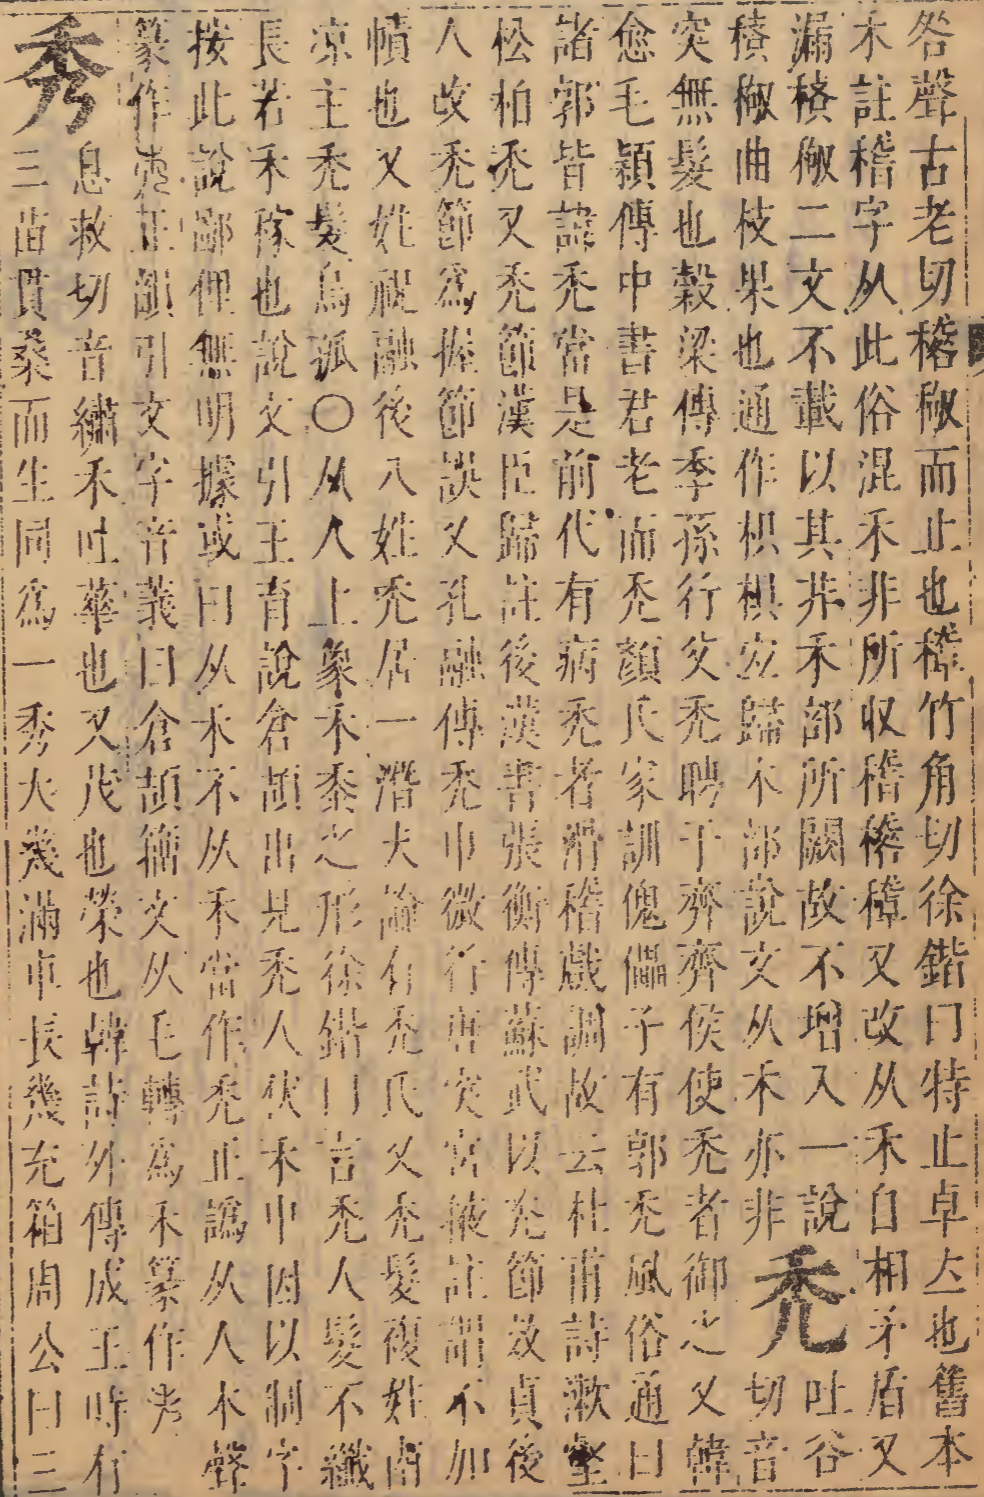 咎聲古老切𥡴𣐊而止也穛竹角切徐鍇曰特止卓立也舊本
木註稽字从此俗混禾非所収稽𥡴穛又改从禾自相矛盾又
漏𥡴𣐊二文不載以其非禾部所闕故不增入一說吐谷
積𣐊曲枝果也通作枳椇宜歸木部說文从木亦非禿切音
突無髮也榖梁傳季孫行父禿聘于齊齊侯使禿者御之又韓
愈毛穎傳中書君老而禿顏氏家訓傀儡子有郭禿風俗通曰
諸郭皆諱禿當是前代有病禿者滑稽戲調故云杜甫詩漱壑
松柏禿又禿節漢臣歸註後漢書張衡傳蘇武以禿節效貞後
人改禿節爲握節誤又孔融傳禿巾微行唐突宮掖註謂不加
幘也又姓祝融後八姓禿居一潛夫論有禿氏又禿髮複姓南
凉主禿髮烏孤〇从人上象禾黍之形徐鍇曰言禿人髮不纖
長若禾稼也說文引王育說倉頡出見禿人伏禾中因以制字
按此說鄙俚無明據或曰从木不从禾當作禿正譌从人木聲
篆作𥝩正韻引文字音義曰倉頡籀文从毛轉爲禾篆作𥝩
秀息救切音繡禾吐華也又茂也榮也韓詩外傳成王時有
三苗貫桑而生同爲一秀大幾滿車長幾充箱周公曰三